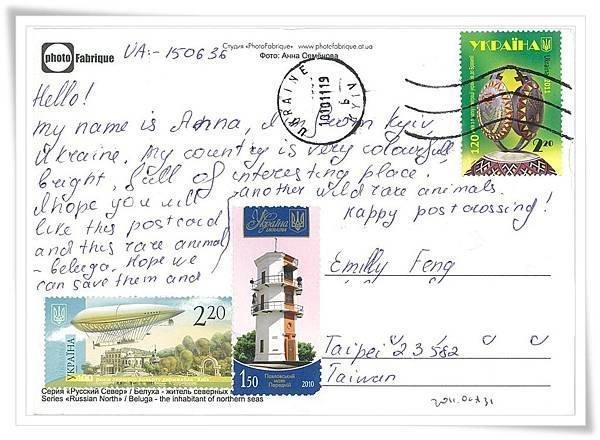 photo Fabrique
UA:- 150636
Студия «PhotoFabrique» www.photofabrique.at.ua
Фото: Анна Семёнова
Hello!
my name is Anna, I from Kyiv,
Ukraine. My country is very colourfull,
bright, full of interesting place.
I hope you will
like this postcard
and this rare animal
- beluga. Hope we
can save them and
another wild rare animals.
Happy postcrossing!
UKRAINE
КИЇВ
УКРАЇНА
Ukraine 2011
120
2.20
Україна
UKRAINA
Павловський
маяк
Передній
1.50
2010
2.20
УКРАЇНА
Emilly Feng
Taipei 23582
Taiwan
Серия «Русский Север» / Белуха - житель северных
Series «Russian North» / Beluga - the inhabitant of northern seas